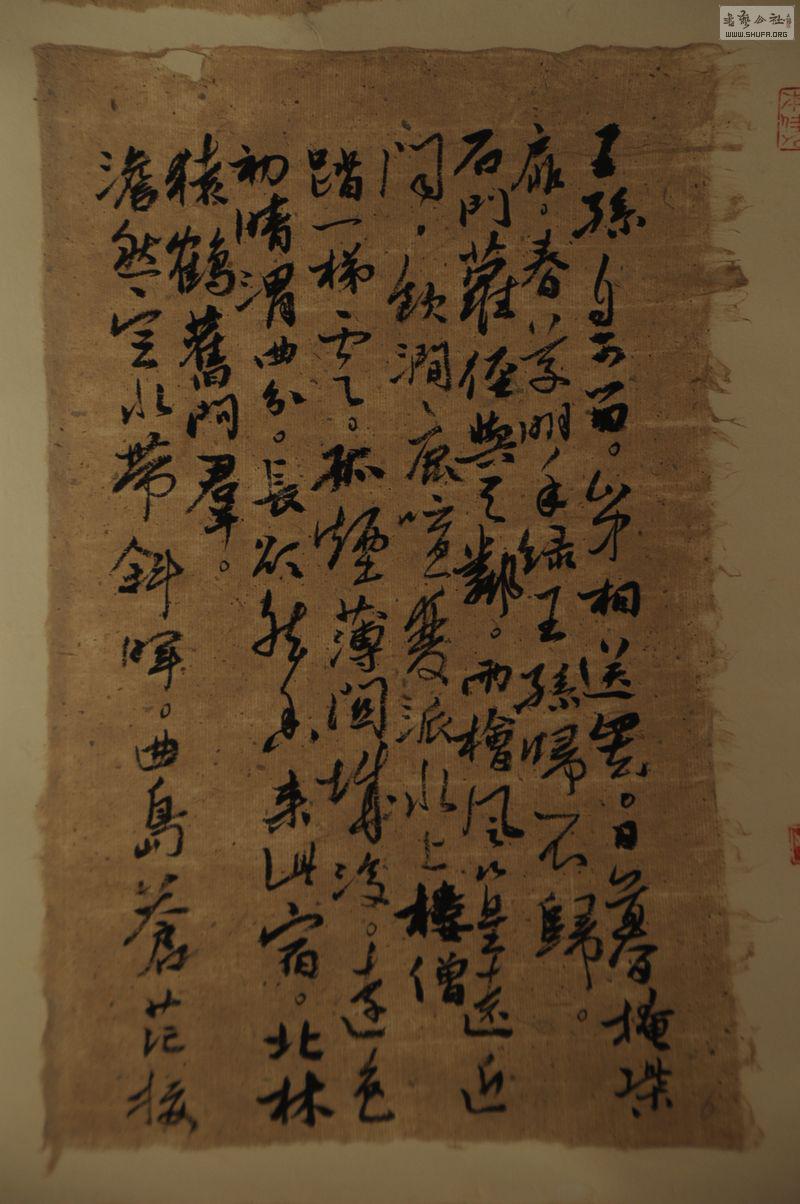 王孫自可留。山中相送罷。日暮掩柴
扉。春草明年綠王孫歸不歸。
石門蘿徑與天鄰。雨檜風篁遠近
聞。飲澗鹿喧雙派水上樓僧
踏一梯雲。孤煙薄關城沒。遠色
初晴渭曲分。長欲然香來此宿。北林
猿鶴舊同羣。
澹然空水帶斜暉。曲島蒼茫接
書藝公社
WWW.SHUFA.ORG